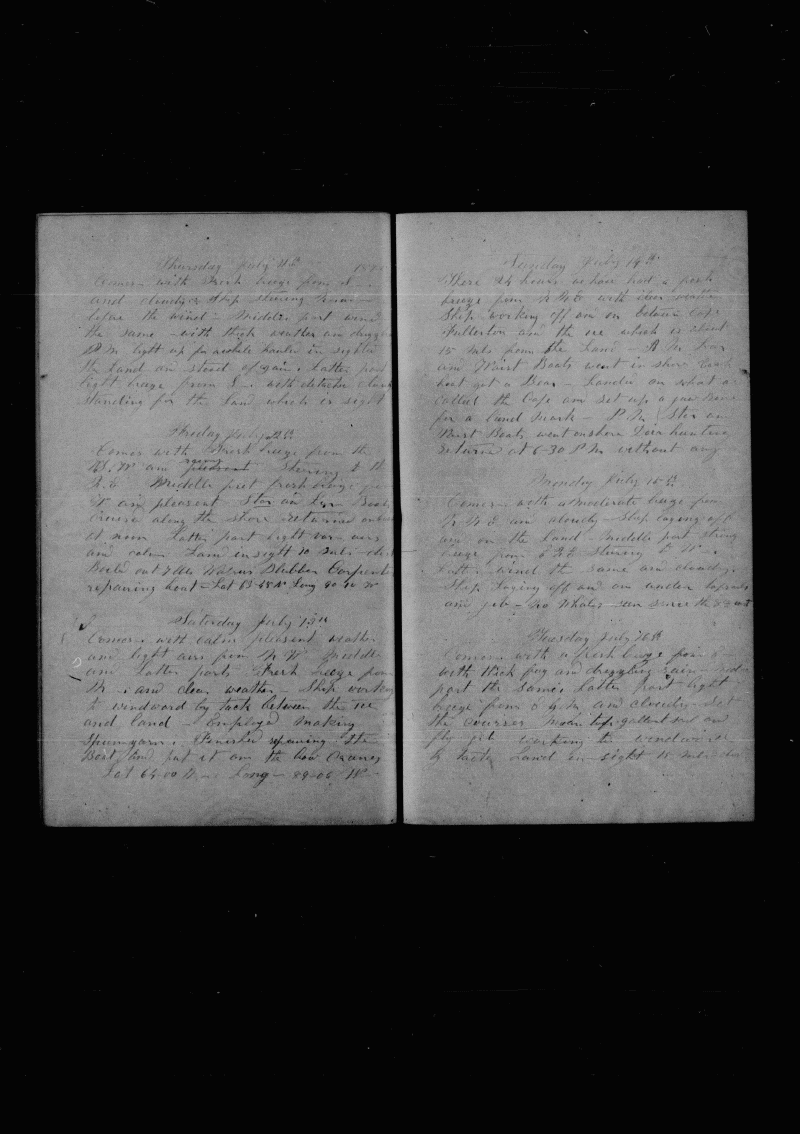 Thursday July 11th
Comes with Fresh breeze from
and cloudy Ship steering
before the wind - Middle part wind
the same - with thick weather and
P.M. light up for a while hauled in sighted
the Land and stood off again. Latter part
light breeze from S - with detached
standing for the Land which is sight
Friday July 12th
Comes with Fresh breeze from the
and pleasant Steering
Middle part fresh breeze
and pleasant - Star and Boats
cruise along the shore returned
at noon Latter part light
and calm Land in sight 10 mls
Boild out 7 bbls Walrus Blubber Carpenter
repairing boat - Lat 63-48 N Long 90
Saturday July 13th
Comes with calm pleasant weather
and light airs from N.W. Middle
and Latter parts Fresh breeze from
and clear weather - Ship working
to windward by tack between the ice
and land - Employed making
Spunyarn. Finished repairing the
Boat and put it on the bow Cranes
Lat 64-00 N - Long - 89-06 W
Sunday July 14th
These 24 hours we have had a fresh
breeze from N.N.E with clear weather
Ship working off and on between Cape
Fullerton and the ice which is about
15 mls from the Land - A.M.
and Waist Boats went in shore Each
boat got a Bear - Landed on what is
called the Cape and set up a jaw bone
for a land mark - P.M. Star and
Waist Boats went on shore Deer hunting
returned at 6-30 P.M. without any
Monday July 15th
Comes with a Moderate breeze from
N.N.E. and cloudy - Ship laying off
and on the Land - Middle part strong
breeze from Steering
Latter wind the same and cloudy.
Ship Laying off and on under topsails
and jib - No Whales seen since the
Tuesday July 16th
Comes with a fresh breeze from
with thick fog and drizzling rain
part the same. Latter part light
breeze from and cloudy - Set
the courses Main top-gallant sail and
fly jib working to windward
by tacks Land in sight 15 mls